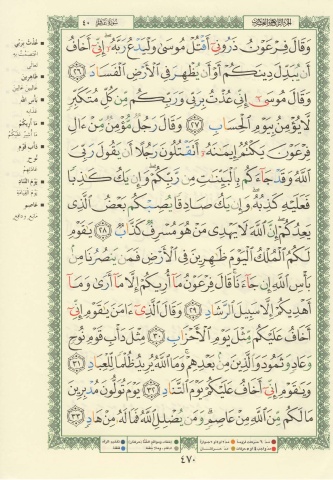 سورة غافر
٤٠
وَقَالَ فِرْعَوْنُ ذَرُونِي أَقْتُلْ مُوسَى وَلْيَدْعُ رَبَّهُ إِنِّي أَخَافُ
أَن يُبَدِّلَ دِينَكُمْ أَوْ أَن يُظْهِرَ فِي الْأَرْضِ الْفَسَادَ ٢٦
وَقَالَ مُوسَى إِنِّي عُذْتُ بِرَبِّي وَرَبِّكُم مِّن كُلِّ مُتَكَبِّرٍ
لَّا يُؤْمِنُ بِيَوْمِ الْحِسَابِ ٢٧ وَقَالَ رَجُلٌ مُّؤْمِنٌ مِّنْ ءَالِ
فِرْعَوْنَ يَكْتُمُ إِيمَٰنَهُ أَتَقْتُلُونَ رَجُلًا أَن يَقُولَ رَبِّيَ
اللَّهُ وَقَدْ جَاءَكُم بِالْبَيِّنَٰتِ مِن رَّبِّكُمْ وَإِن يَكُ كَٰذِبًا
فَعَلَيْهِ كَذِبُهُ وَإِن يَكُ صَادِقًا يُصِبْكُم بَعْضُ الَّذِي
يَعِدُكُمْ إِنَّ اللَّهَ لَا يَهْدِي مَنْ هُوَ مُسْرِفٌ كَذَّابٌ ٢٨ يَٰقَوْمِ
لَكُمُ الْمُلْكُ الْيَوْمَ ظَٰهِرِينَ فِي الْأَرْضِ فَمَن يَنصُرُنَا مِن
بَأْسِ اللَّهِ إِن جَاءَنَا قَالَ فِرْعَوْنُ مَا أُرِيكُمْ إِلَّا مَا أَرَىٰ وَمَا
أَهْدِيكُمْ إِلَّا سَبِيلَ الرَّشَادِ ٢٩ وَقَالَ الَّذِي ءَامَنَ يَٰقَوْمِ إِنِّي
أَخَافُ عَلَيْكُم مِّثْلَ يَوْمِ الْأَحْزَابِ ٣٠ مِثْلَ دَأْبِ قَوْمِ نُوحٍ
وَعَادٍ وَثَمُودَ وَالَّذِينَ مِن بَعْدِهِمْ وَمَا اللَّهُ يُرِيدُ ظُلْمًا لِّلْعِبَادِ ٣١
وَيَٰقَوْمِ إِنِّي أَخَافُ عَلَيْكُمْ يَوْمَ التَّنَادِ ٣٢ يَوْمَ تُوَلُّونَ مُدْبِرِينَ
مَا لَكُم مِّنَ اللَّهِ مِنْ عَاصِمٍ وَمَن يُضْلِلِ اللَّهُ فَمَا لَهُ مِنْ هَادٍ ٣٣
عُذْتُ بِرَبِّي
اعتصمت به
ظاهرين
غالبين عالين
بأس الله
عذابه
ما أريكم
دأب قوم نوح
عادتهم
يوم التناد
يوم القيامة
عاصم
مانع ودافع
٤٧٠